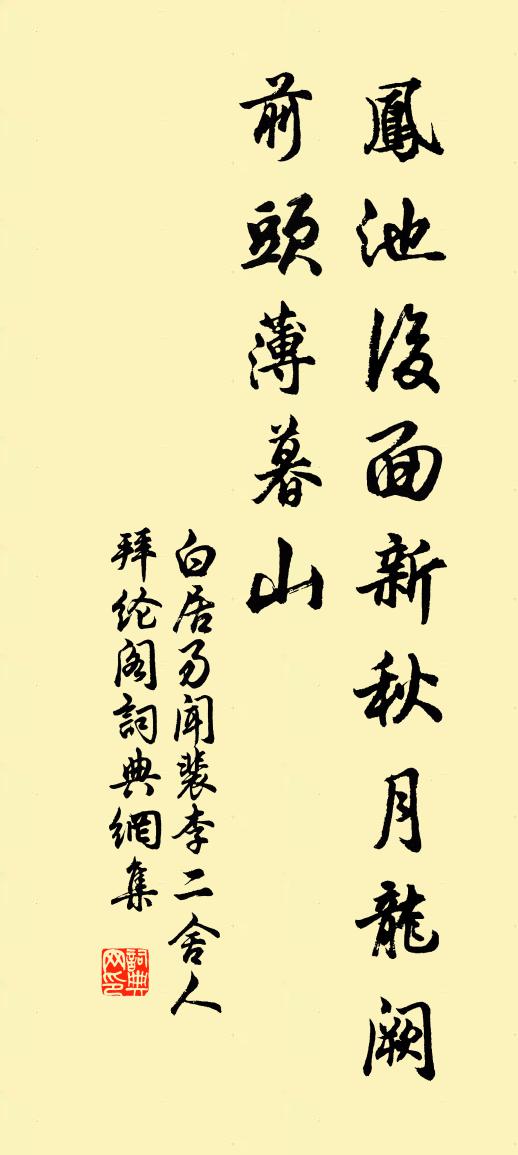 鳳池後面新秋月龍闕
前頭薄暮山
白居易聞裴李二舍人
拜纶阁詞典網集
詞典
网印